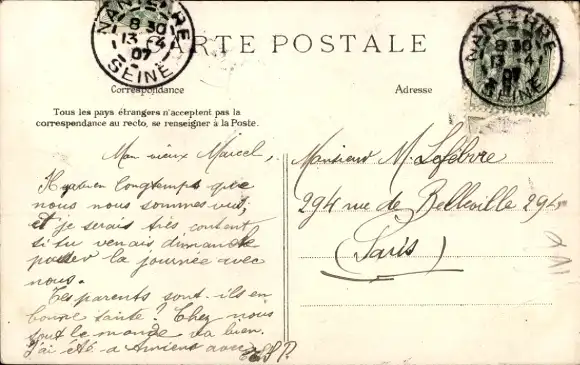 NANTERRE
8 30
13 -4
07
SEINE
CARTE POSTALE
NANTERRE
8 30
13 -4
07
SEINE
Correspondance
Adresse
Tous les pays étrangers n'acceptent pas la
correspondance au recto, se renseigner à la Poste.
Mon vieux Marcel,
longtemps que
nous nous sommes vut,
et je serais très content
si tu venais dimanche
passer la journée avec
nous.
Tes parents sont-ils en
bonne santé? Chez nous
tout le monde va bien.
J'ai été a Amiens avec
Monsieur M. Lefébvre
294 rue de Belleville 294
(Paris)